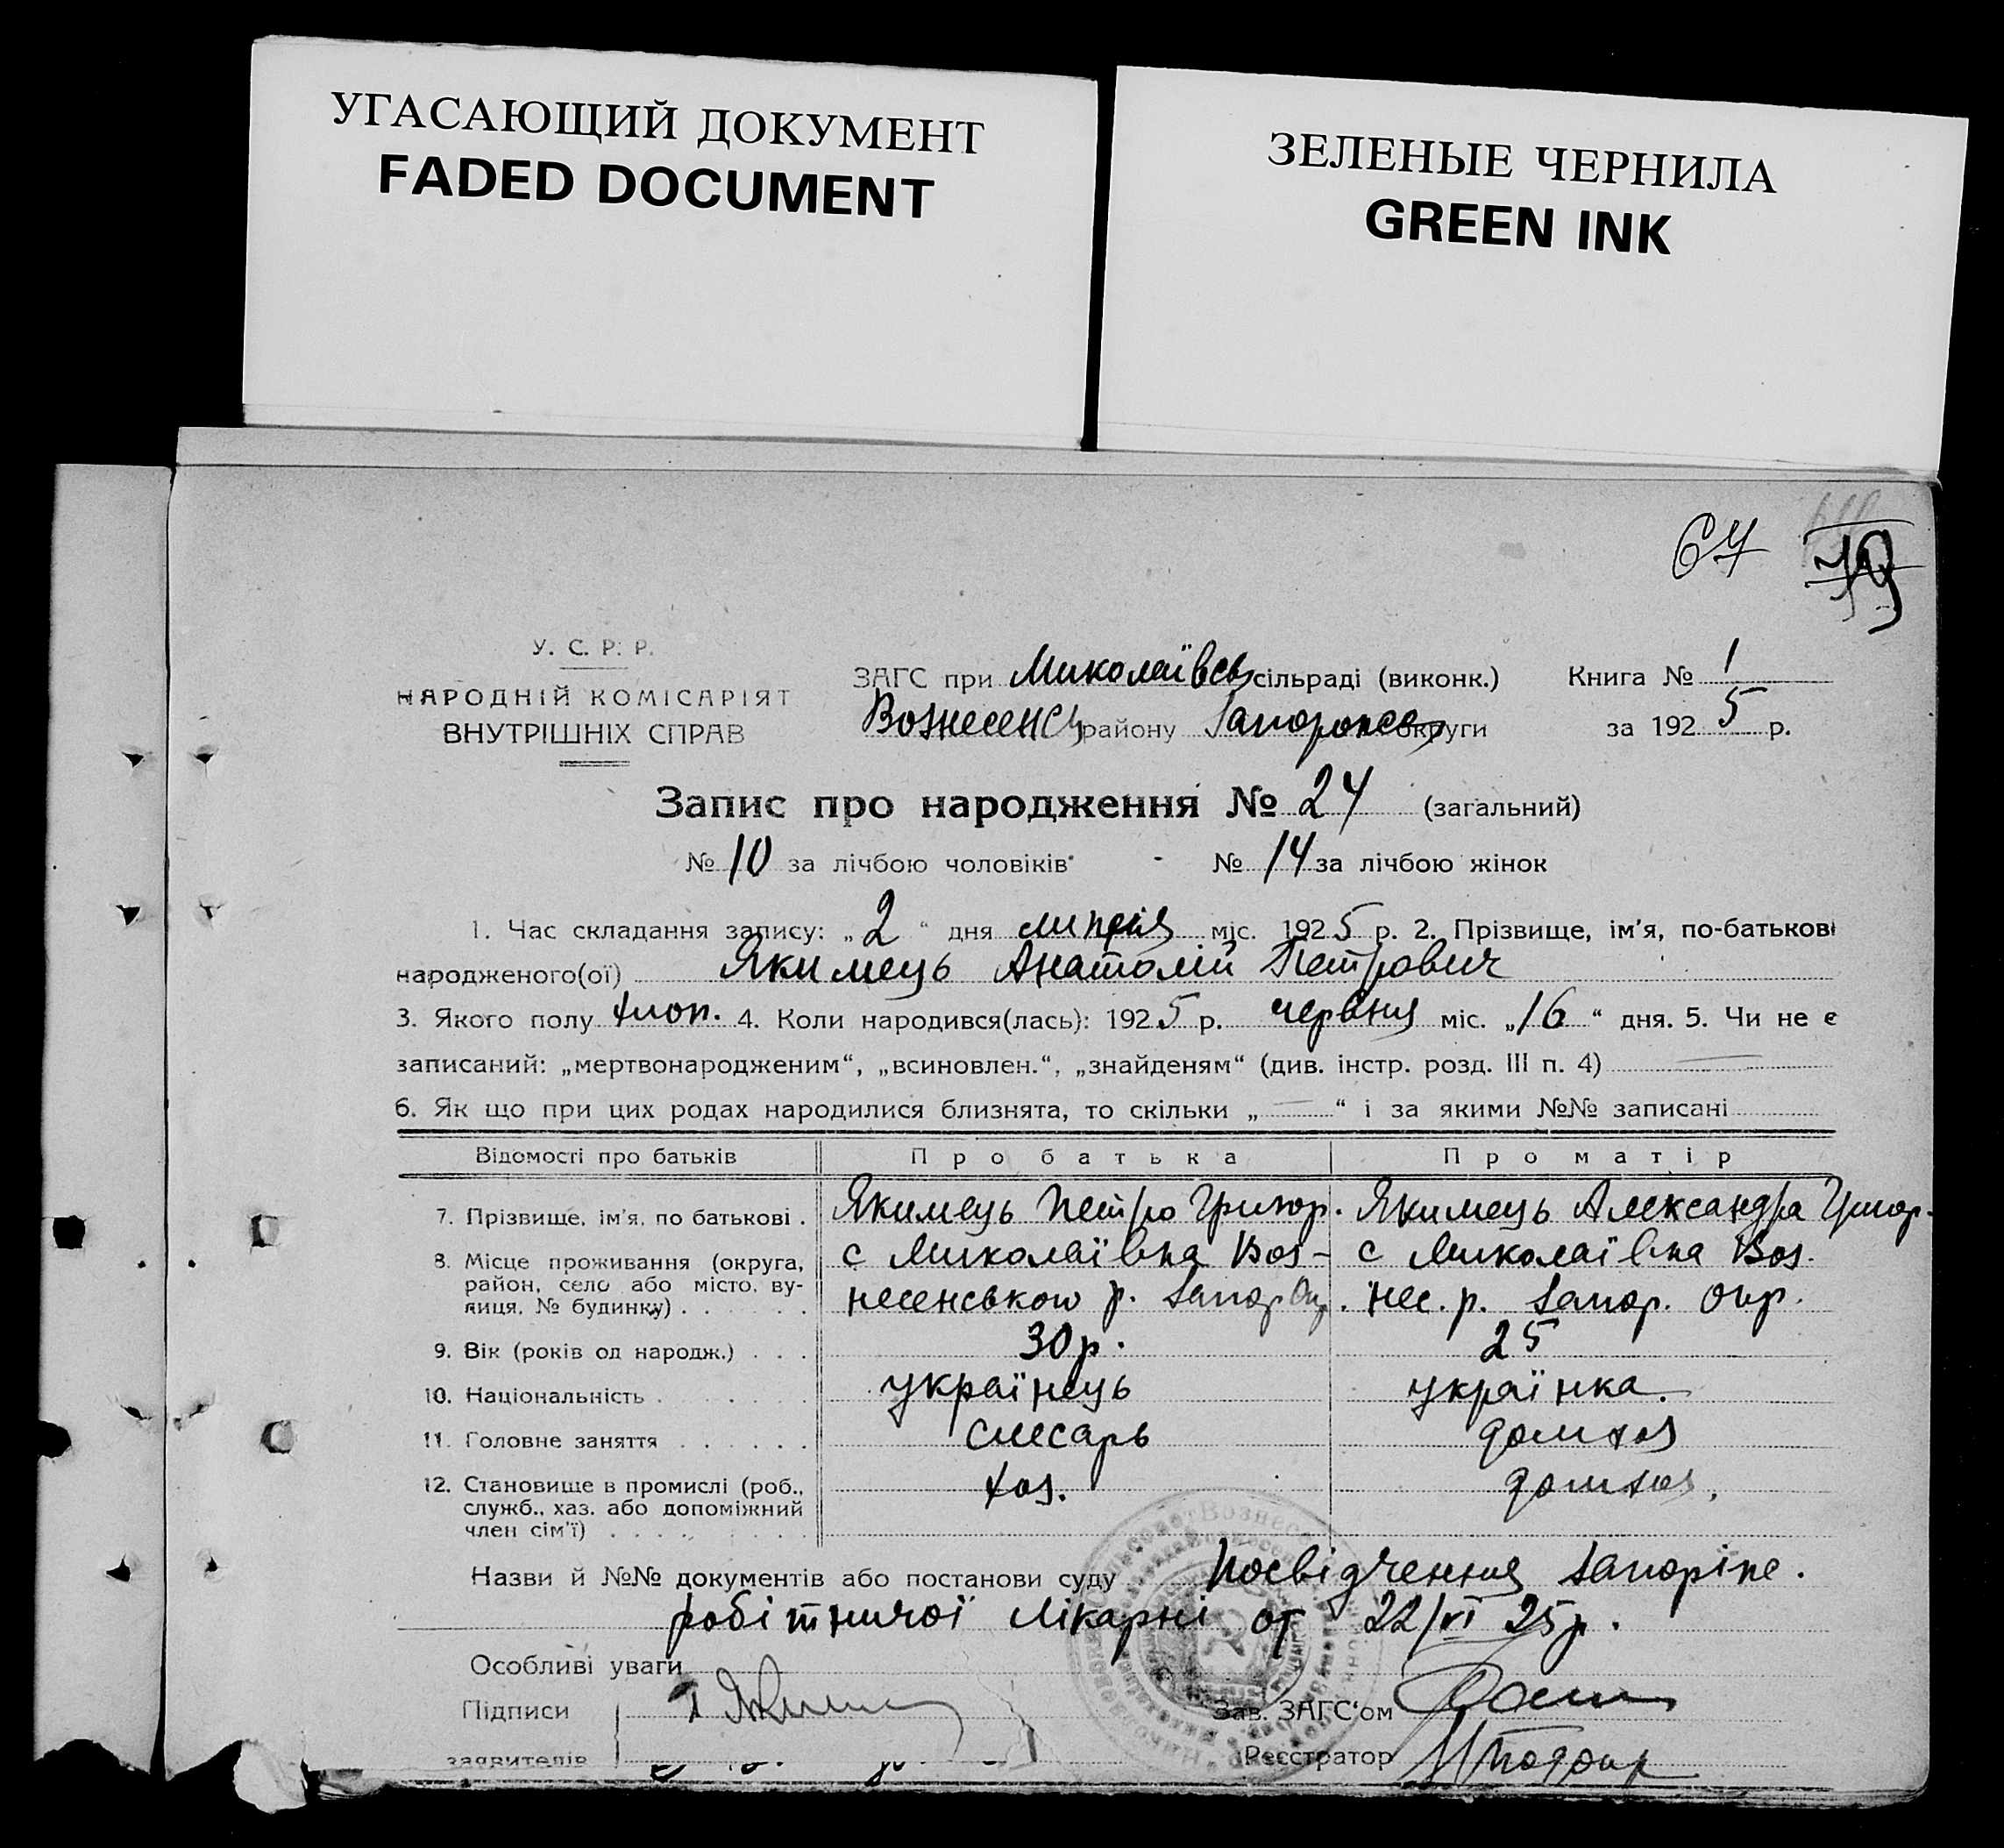 УГАСАЮЩИЙ ДОКУМЕНТ
FADED DOCUMENT
ЗЕЛЕНЫЕ ЧЕРНИЛА
GREEN INK
67 79
У. С. Р. Р.
НАРОДНІЙ КОМІСАРІЯТ
ВНУТРІШНІХ СПРАВ
ЗАГС при Миколаївсь сільраді (виконк.) Книга № 1
Вознесенськ району Запорожск округи за 1925 р.
Запис про народження № 24 (загальний)
№ 10 за лічбою чоловіків - № 14 за лічбою жінок
1. Час складання запису: „2“ дня липня міс. 1925 р. 2. Прізвище, ім'я, по-батькові
народженого(ої) Якимець Анатолій Петрович
3. Якого полу хлоп. 4. Коли народився(лась): 1925 р. червня міс. „16“ дня. 5. Чи не є
записаний: „мертвонародженим“, „всиновлен.“, „знайденям“ (див. інстр. розд. III п. 4) —
6. Як що при цих родах народилися близнята, то скільки „—“ і за якими №№ записані
Відомості про батьків Про батька Про матір
7. Прізвище, ім'я, по батькові . Якимець Петро Григор. Якимець Александра Григор.
8. Місце проживання (округа, с Миколаївка Воз- с Миколаївка Воз.
район, село або місто, ву-
лиця, № будинку) . . . . . . несенського р. Запор Окр. нес. р. Запор. Окр.
9. Вік (років од народж.) . . . 30 р. 25
10. Національність . . . . . . українець українка.
11. Головне заняття . . . . . . слесарь домхоз
12. Становище в промислі (роб., хоз. домхоз.
служб., хаз. або допоміжний
член сім'ї) . . . . . . . . .
Назви й №№ документів або постанови суду Посвідчення Запоріже.
робітничої лікарні от 22/VI 25 р.
Особливі уваги
Підписи Зав. ЗАГС'ом
заявителів Реєстратор